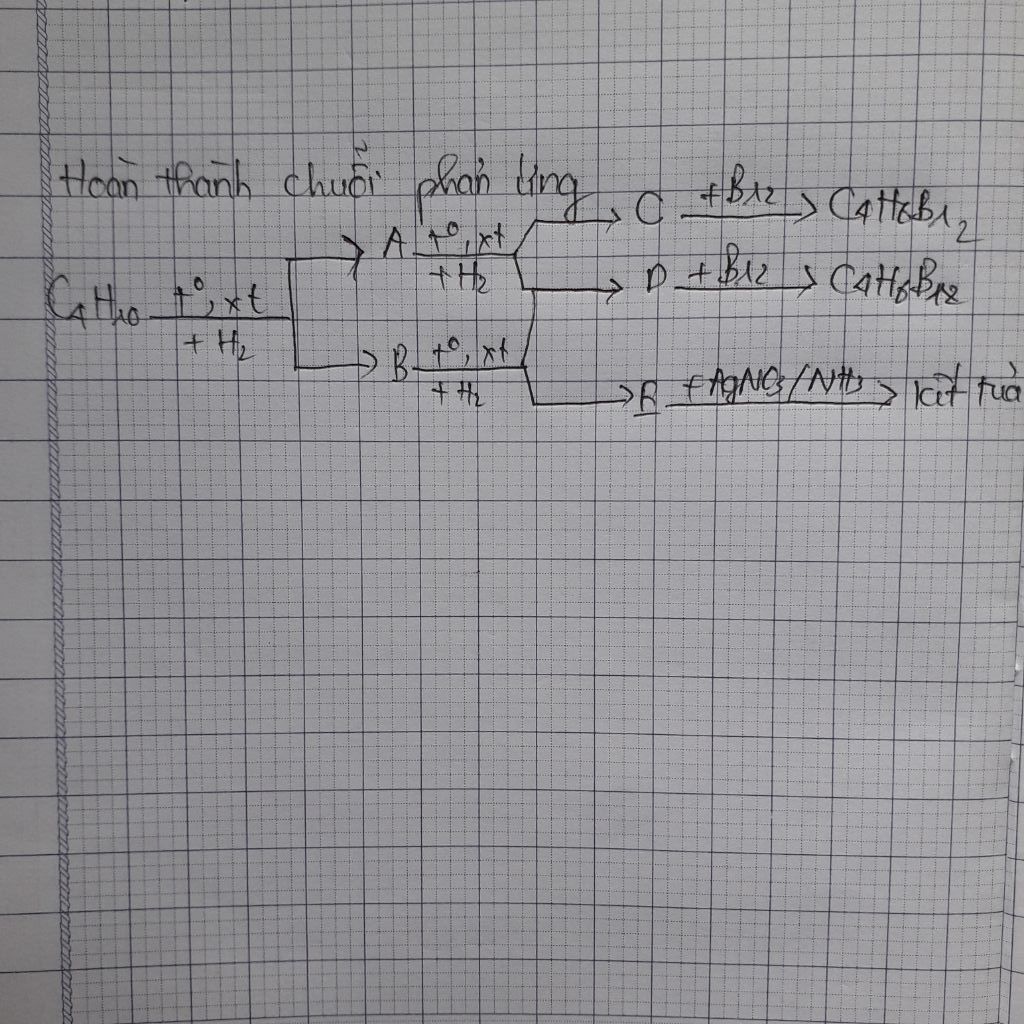 Hoàn thành chuỗi phản ứng
C4H10 t°, xt + H2
A t°, xt + H2
C +Br2 C4H6Br2
D +Br2 C4H6Br2
B t°, xt + H2
E +AgNO3/NH3 kết tủa